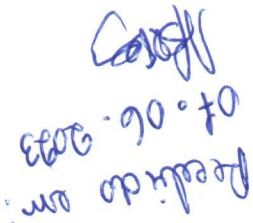 Recebido em:
07.06.2023